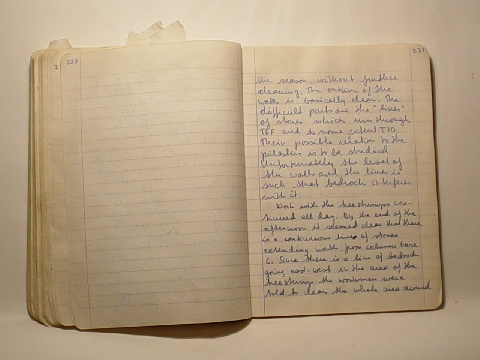 220
221
the season, without further
cleaning. The outline of the
walls is basically clear. The
difficult parts are the "lines"
of stones which run through
T6F and to some extent T10.
Their possible relation to the
pilasters is to be studied
Unfortunately the level of
the walls and the lines is
such that bedrock interferes
with it.
Work with the tree stumps con-
tinued all day. By the end of the
afternoon it seemed clear that there
is a continuous line of stones
extending north from column base
6. Since there is a line of bedrock
going east-west in the area of the
tree stumps the workmen were
told to clean the whole area around